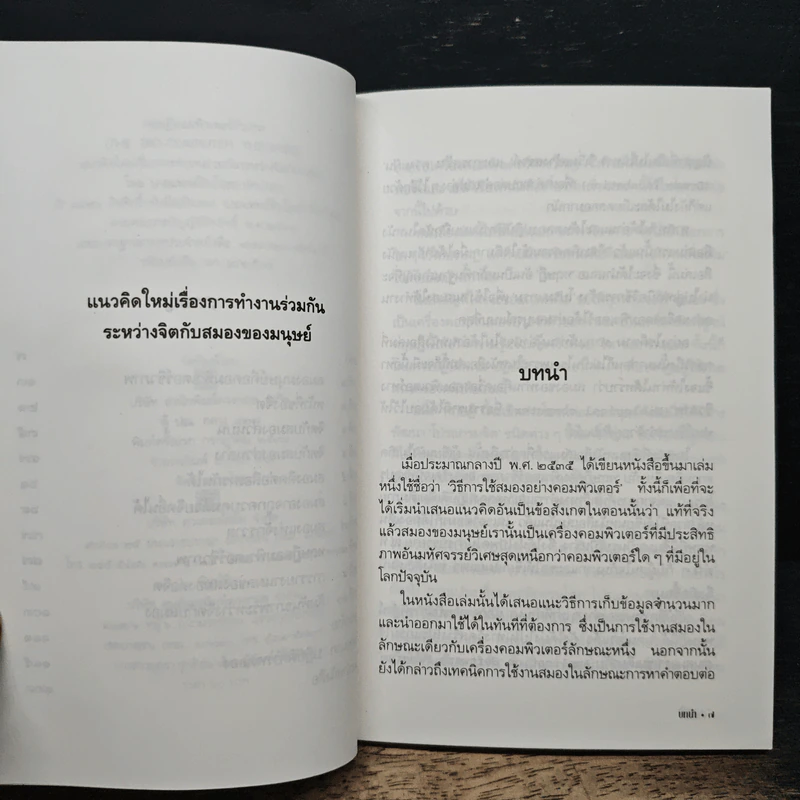 แนวคิดใหม่เรื่องการทำงานร่วมกัน
ระหว่างจิตกับสมองของมนุษย์
บทนำ
เมื่อประมาณกลางปี พ.ศ. ๒๕๓๕ ได้เขียนหนังสือขึ้นมาเล่ม
หนึ่งใช้ชื่อว่า 'วิธีการใช้สมองอย่างคอมพิวเตอร์' ทั้งนี้ก็เพื่อที่จะ
ได้เริ่มนำเสนอแนวคิดอันเป็นข้อสังเกตในตอนนั้นว่า แท้ที่จริง
แล้วสมองของมนุษย์เรานั้นเป็นเครื่องคอมพิวเตอร์ที่มีประสิทธิ
ภาพอันมหัศจรรย์วิเศษสุดเหนือกว่าคอมพิวเตอร์ใด ๆ ที่มีอยู่ใน
โลกปัจจุบัน
ในหนังสือเล่มนั้นได้เสนอแนะวิธีการเก็บข้อมูลจำนวนมาก
และนำออกมาใช้ได้ในทันทีที่ต้องการ ซึ่งเป็นการใช้งานสมองใน
ลักษณะเดียวกับเครื่องคอมพิวเตอร์ลักษณะหนึ่ง นอกจากนั้น
ยังได้กล่าวถึงเทคนิคการใช้งานสมองในลักษณะการหาคำตอบต่อ
บทนำ • ๗